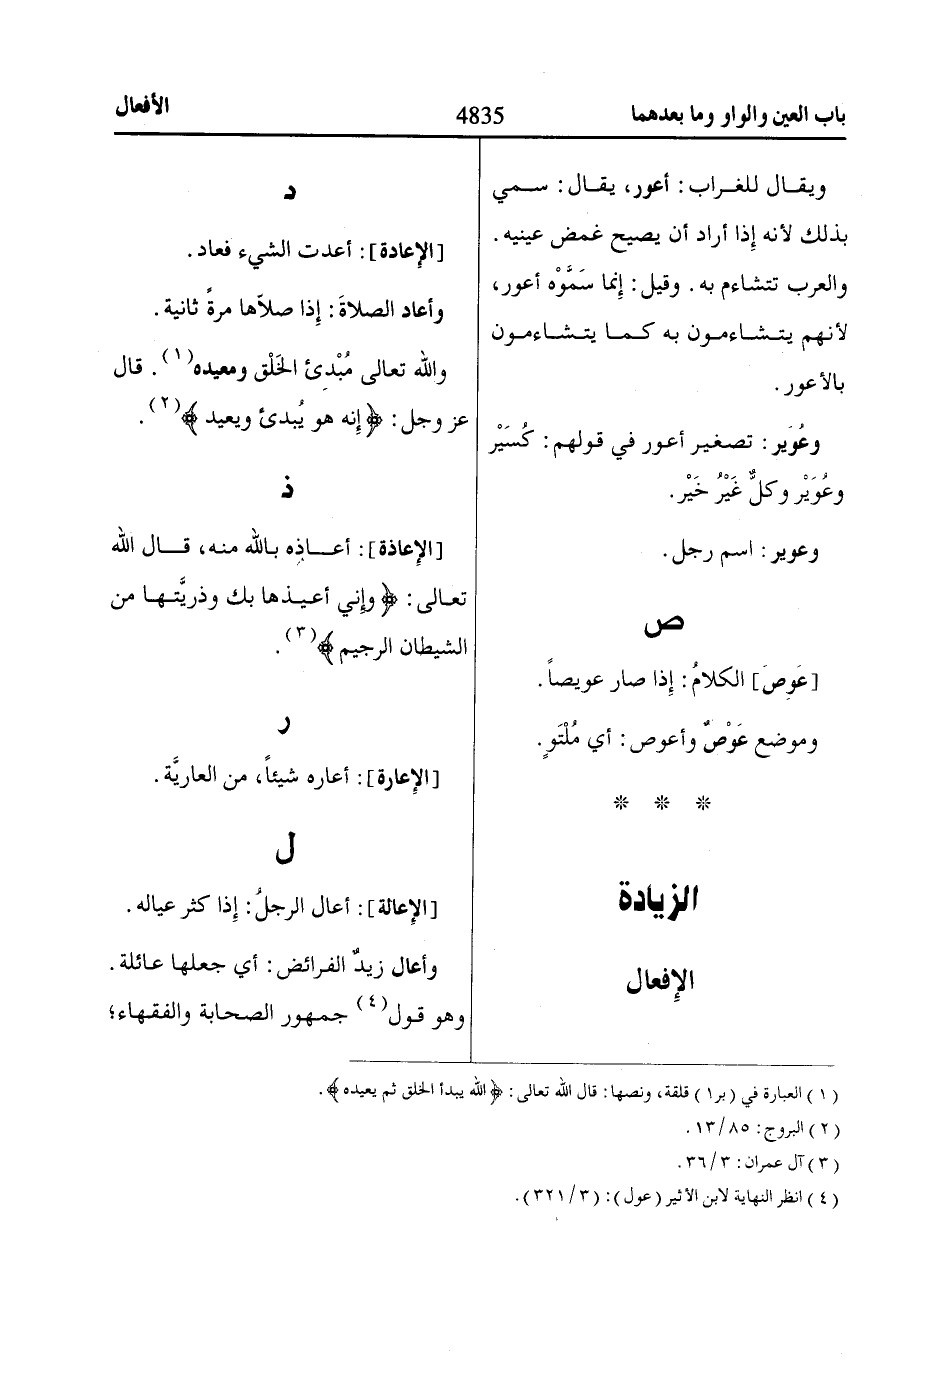 باب العين والواو وما بعدهما
4835
الأفعال
ويقال للغراب: أعور، يقال: سمي
بذلك لأنه إذا أراد أن يصيح غمض عينيه.
والعرب تتشاءم به. وقيل: إنما سَمَّوْه أعور،
لأنهم يتشاءمون به كما يتشاءمون
بالأعور.
وعُوَير: تصغير أعور في قولهم: كُسَيْر
وعُوَيْر وكلٌّ غَيْرُ خَيْر.
وعوير: اسم رجل.
ص
[عَوِصَ] الكلامُ: إذا صار عويصاً.
وموضع عَوْصٌ وأعوص: أي مُلْتَوٍ.
* * *
الزيادة
الإفعال
د
[الإعادة]: أعدت الشيء فعاد.
وأعاد الصلاةَ: إذا صلاّها مرةً ثانية.
والله تعالى مُبْدِئ الخَلْق ومعيده(١). قال
عز وجل: ﴿إنه هو يُبدئ ويعيد﴾(٢).
ذ
[الإعاذة]: أعاذه بالله منه، قال الله
تعالى: ﴿وإني أعيذها بك وذريَّتها من
الشيطان الرجيم﴾(٣).
ر
[الإعارة]: أعاره شيئاً، من العاريَّة.
ل
[الإعالة]: أعال الرجلُ: إذا كثر عياله.
وأعال زيدٌ الفرائض: أي جعلها عائلة.
وهو قول(٤) جمهور الصحابة والفقهاء؛
(١) العبارة في (بر١) قلقة، ونصها: قال الله تعالى: ﴿الله يبدأ الخلق ثم يعيده﴾.
(٢) البروج: ١٣/٨٥.
(٣) آل عمران: ٣٦/٣.
(٤) انظر النهاية لابن الأثير (عول): (٣٢١/٣).